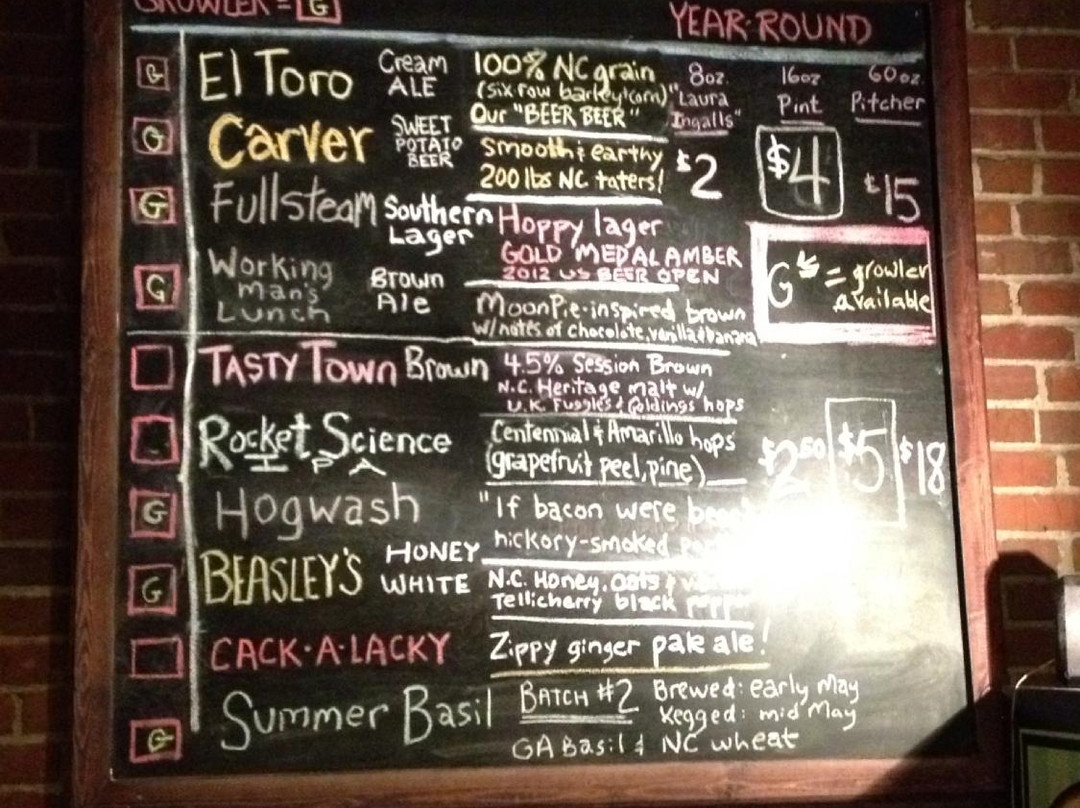 GROWLER = G
YEAR-ROUND
8oz. "Laura Ingalls"
16oz Pint
60oz. Pitcher
G El Toro Cream ALE 100% NC grain
(six row barley & corn)
Our "BEER BEER"
G Carver SWEET POTATO BEER smooth & earthy
200 lbs NC taters!
$2 $4 $15
G Fullsteam Southern Lager Hoppy lager
GOLD MEDAL AMBER
2012 US BEER OPEN
G = growler available
G Working Man's Lunch Brown Ale MoonPie-inspired brown
w/notes of chocolate, vanilla & banana
TASTY TOWN Brown 4.5% Session Brown
N.C. Heritage malt w/
U.K. Fuggles & Goldings hops
Rocket Science IPA Centennial & Amarillo hops
(grapefruit peel, pine)
$2.50 $5 $18
G Hogwash "If bacon were
hickory-smoked
G BEASLEY'S HONEY WHITE N.C. Honey, oats &
Tellicherry black
CACK-A-LACKY Zippy ginger pale ale!
G Summer Basil BATCH #2 Brewed: early May
Kegged: mid May
GA Basil & NC wheat